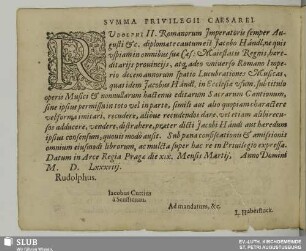 SVMMA PRIVILEGII CAESAREI
RVDOLPHI II. Romanorum Imperatoris semper Au-
gusti &c. diplomate cautum est Jacobo Händl, ne quis
uspiam in omnibus suæ Cæs: Maiestatis Regnis, hære-
ditarijs provincijs, atq; adeò universo Romano Impe-
rio decem annorum spatio Lucubrationes Musicas,
quas idem Jacobus Händl, in Ecclesiæ usum, sub titulo
operis Musici & nonnullarum hactenus editarum Sacrarum Cantionum,
sine ipsius permissu in toto vel in parte, simili aut alio quopiam charactere
vel forma imitari, recudere, aliisve recudendas dare, vel etiam aliò recu-
sos adducere, vendere, distrahere, præter dicti Jacobi Händl aut hæredum
ipsius consensum, quovis modo ausit. Sub pœna confiscationis & amissionis
omnium eiusmodi librorum, ac mulcta super hac re in Privilegio expressa.
Datum in Arce Regia Pragæ die xix. Mensis Martij, Anno Domini
M. D. Lxxxvij.
Rudolphus.
Iacobus Curtius
à Senftenau.
Ad mandatum, &c.
I. Haberstock.
SLUB
Wir führen Wissen.
EV.-LUTH. KIRCHGEMEINDE
ST. PETRI AUGUSTUSBURG